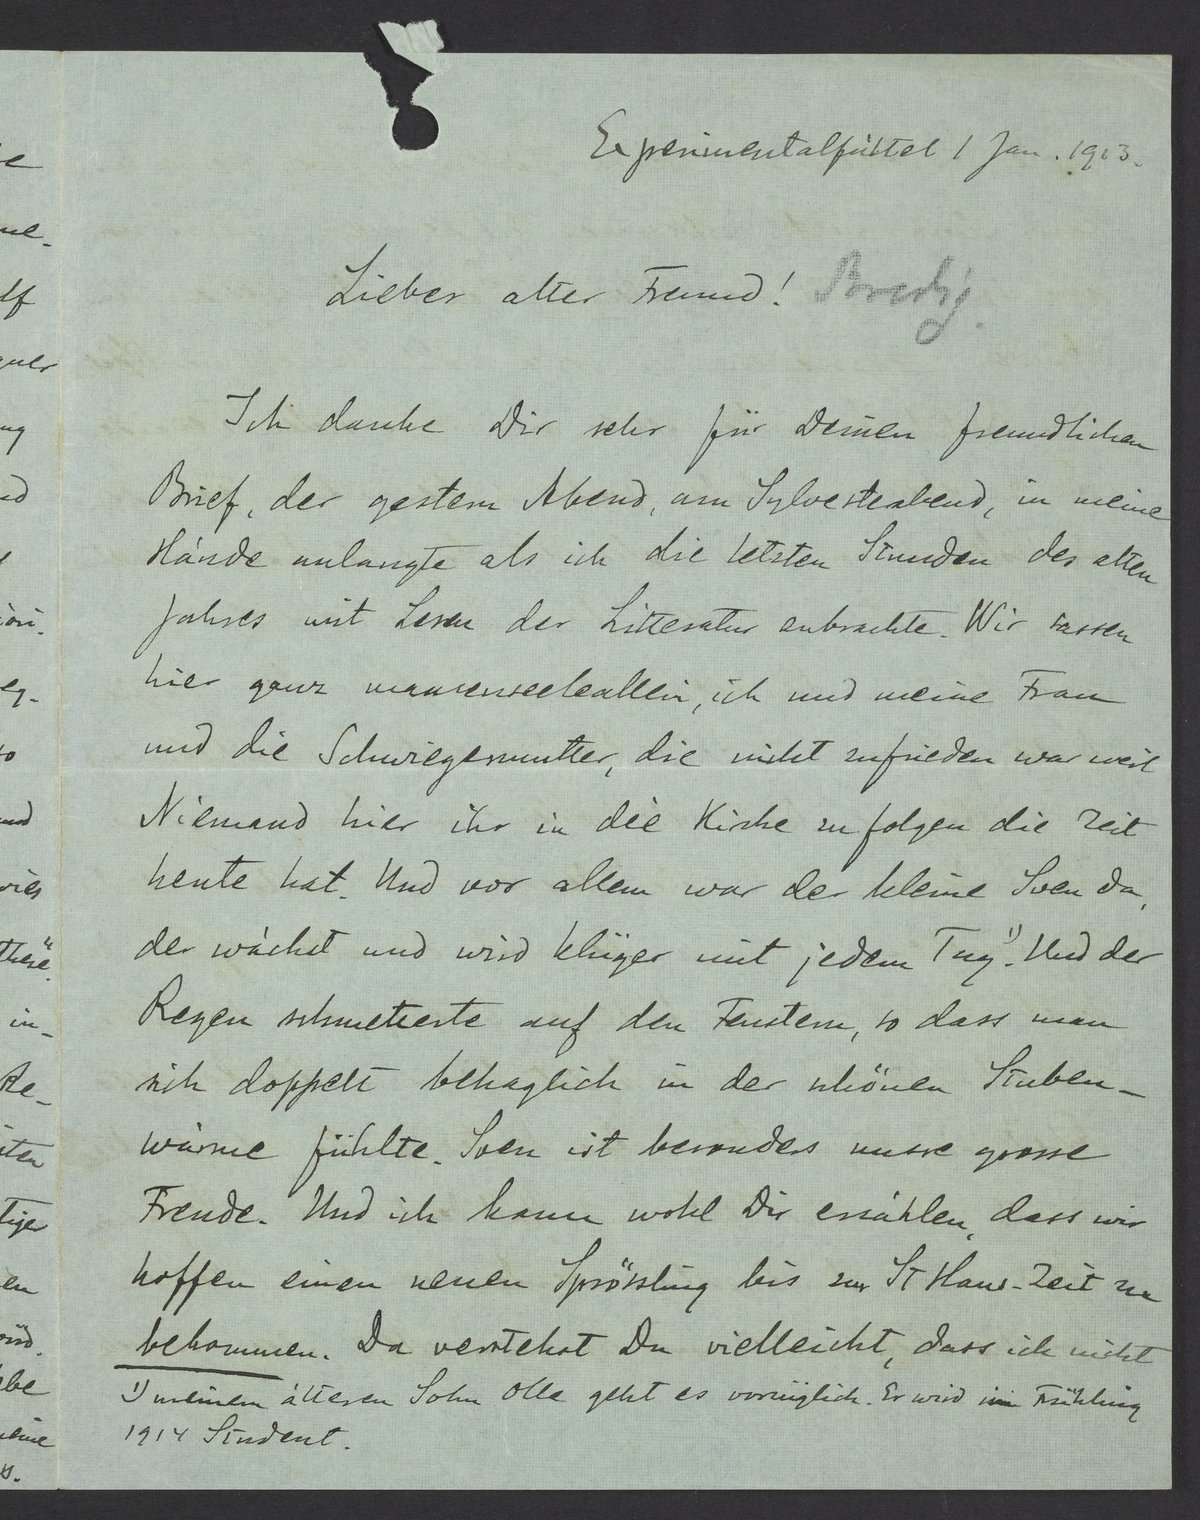 Experimentalfältet 1 Jan. 1913.
Lieber alter Freund! Bredig.
Ich danke Dir sehr für Deinen freundlichen
Brief, der gestern Abend, am Sylvesterabend, in meine
Hände anlangte als ich die letzten Stunden des alten
Jahres mit Lesen der Litteratur zubrachte. Wir sassen
hier ganz mausenseelallein, ich und meine Frau
und die Schwiegermutter, die nicht zufrieden war weil
Niemand hier ihr in die Kirche zu folgen die Zeit
heute hat. Und vor allem war der kleine Sven da,
der wächst und wird klüger mit jedem Tag 1). Und der
Regen schmetterte auf den Fenstern, so dass man
sich doppelt behaglich in der schönen Stuben-
wärme fühlte. Sven ist besonders unsre grosse
Freude. Und ich kann wohl Dir erzählen, dass wir
hoffen einen neuen Sprössling bis zur St Hans-Zeit zu
bekommen. Da verstehst Du vielleicht, dass ich nicht
1) meinem älteren Sohn Olle geht es vorzüglich. Er wird im Frühling
1914 Student.